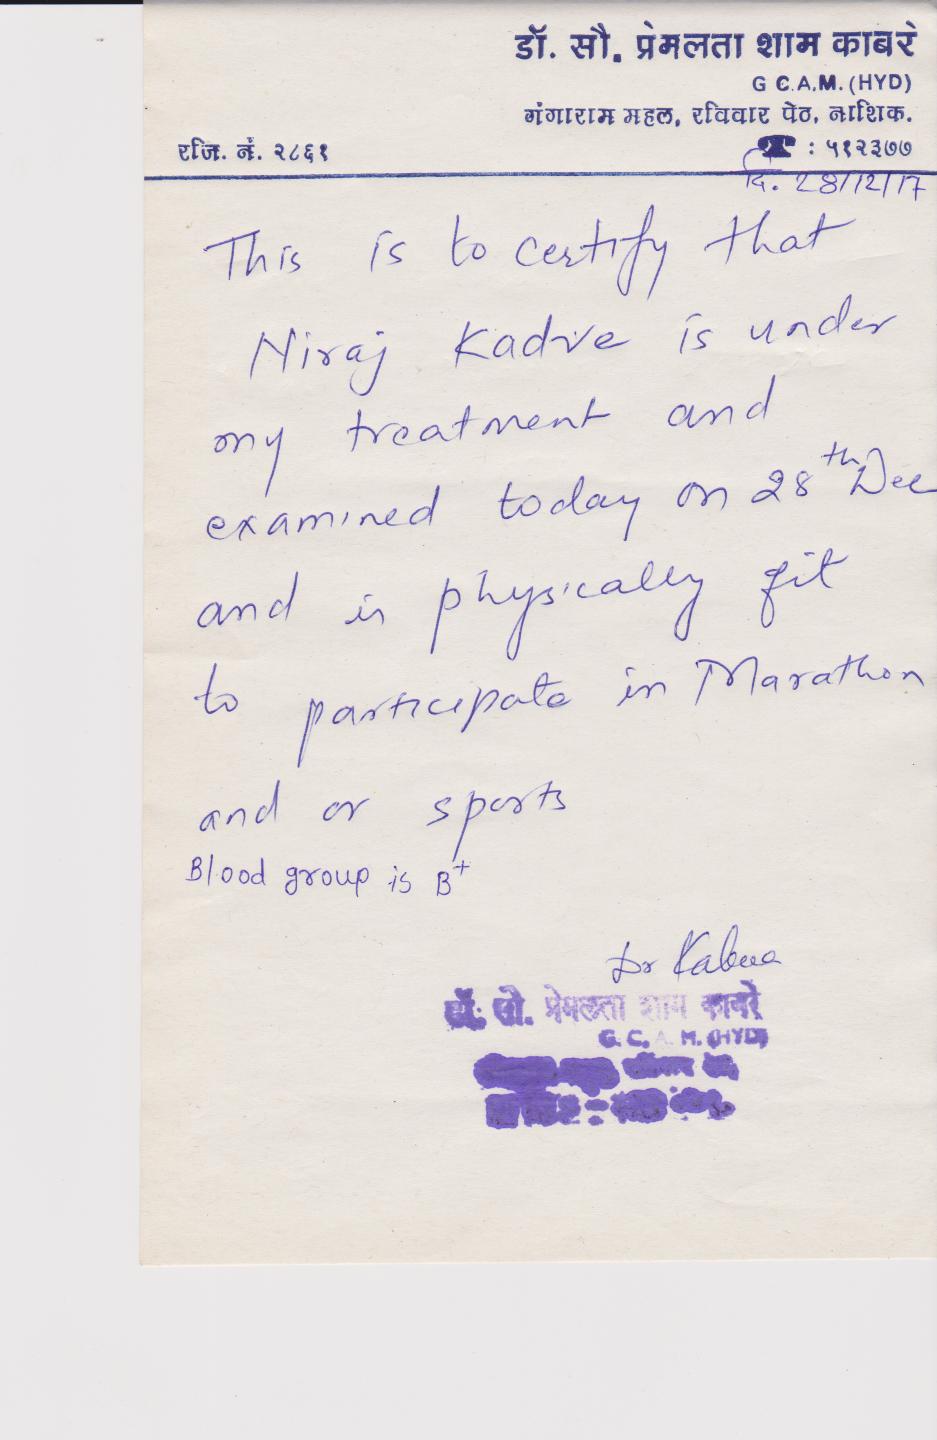 डॉ. सौ. प्रेमलता शाम काबरे
G C.A.M. (HYD)
गंगाराम महल, रविवार पेठ, नाशिक.
रजि. नं. २८६१
☎ : ५१२३७७
दि. 28/12/17
This is to certify that
Niraj Kadve is under
my treatment and
examined today on 28th Dec
and is physically fit
to participate in Marathon
and or sports
Blood group is B+
Dr Kabra
डॉ. सौ. प्रेमलता शाम काबरे
G. C. A. M. (HYD)